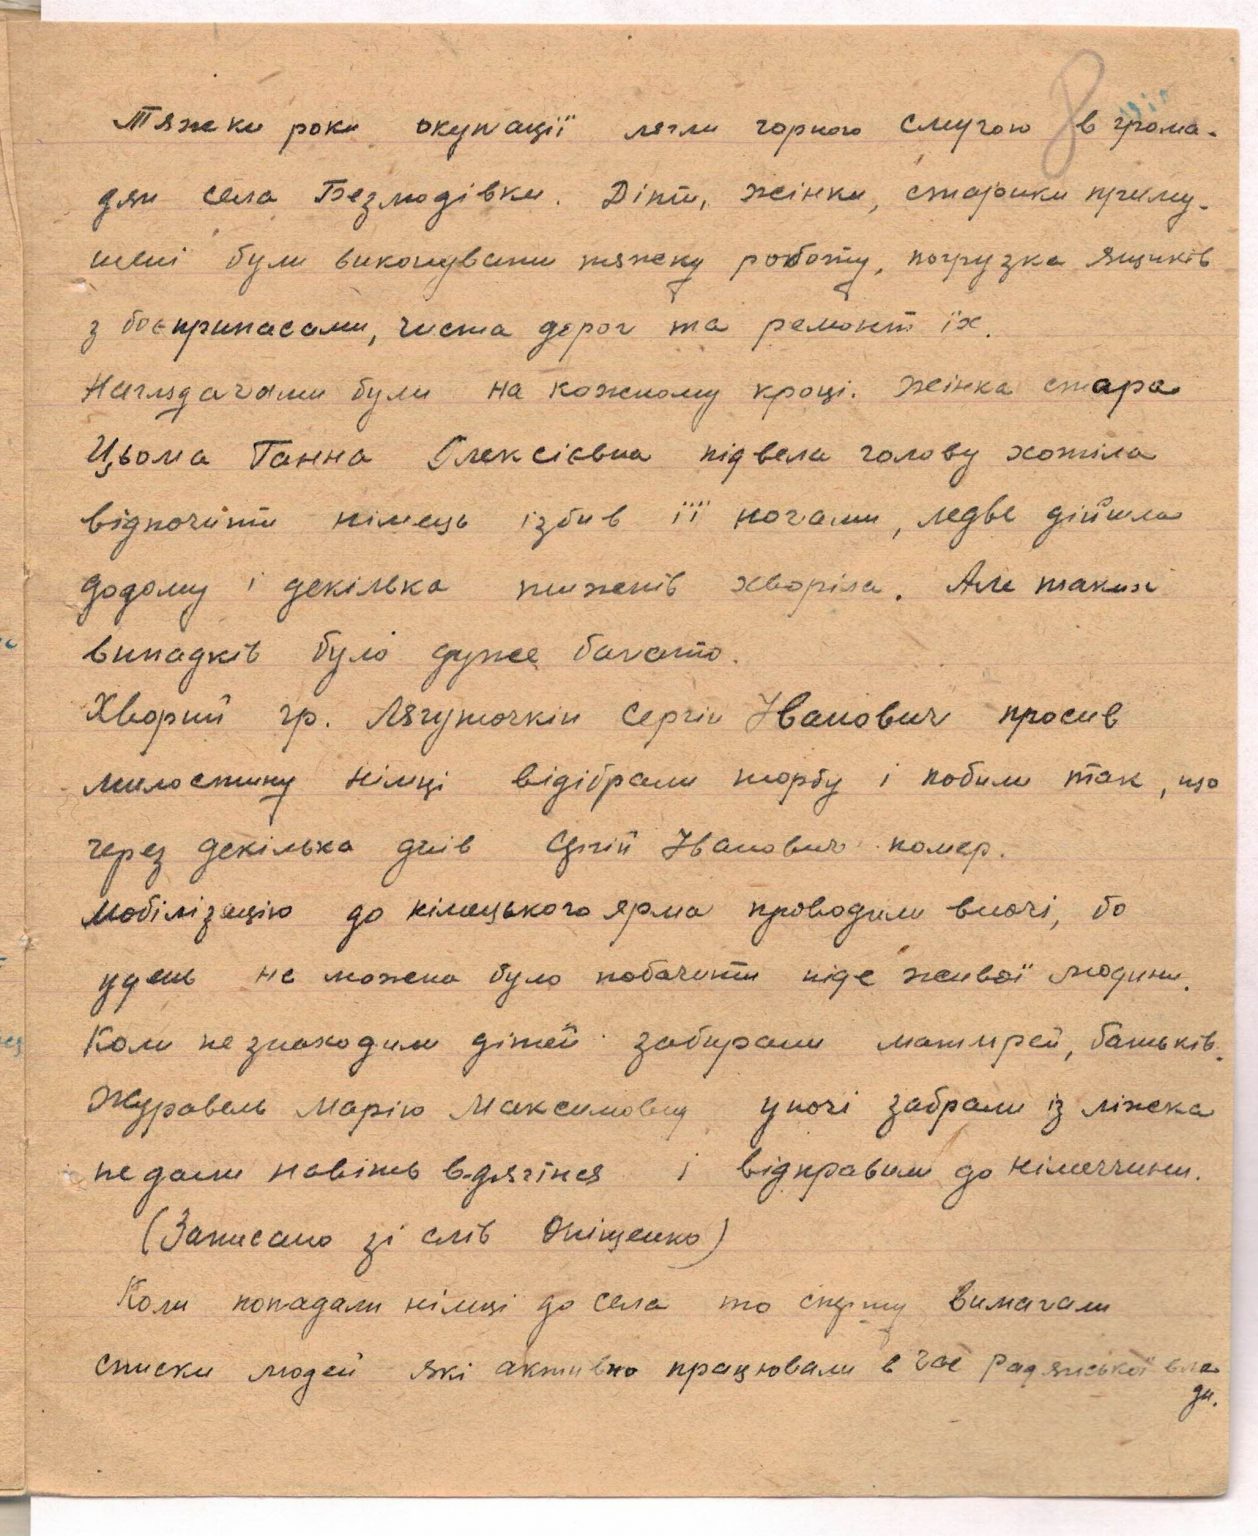 8
Тяжки роки окупації лягли чорною смугою в грома-
дян села Безлюдівки. Діти, жінки, старики приму-
шені були виконувати тяжку роботу, погрузка ящиків
з боєприпасами, чистка дорог та ремонт їх.
Наглядачами були на кожному кроці. Жінка стара
Цьома Ганна Олексієвна підвела голову хотіла
відпочити німець ізбив її ногами, ледве дійшла
додому і декілька тижнів хворіла. Але таких
випадків було дуже багато.
Хворий гр. Лягуточкін Сергій Іванович просив
милостину німці відібрали торбу і побили так, що
через декілька днів Сергій Іванович помер.
Мобілізацію до німецького ярма проводили вночі, бо
удень не можена було побачити ніде живої людини.
Коли не знаходили дітей забирали матирей, батьків.
Журавель Марію Максимовну уночі забрали із ліжка
не дали навіть вдягтися і відправили до німеччини.
(Записано зі слів Оніщенко)
Коли попадали німці до села то спершу вимагали
списки людей які активно працювали в час Радянської вла
ди.